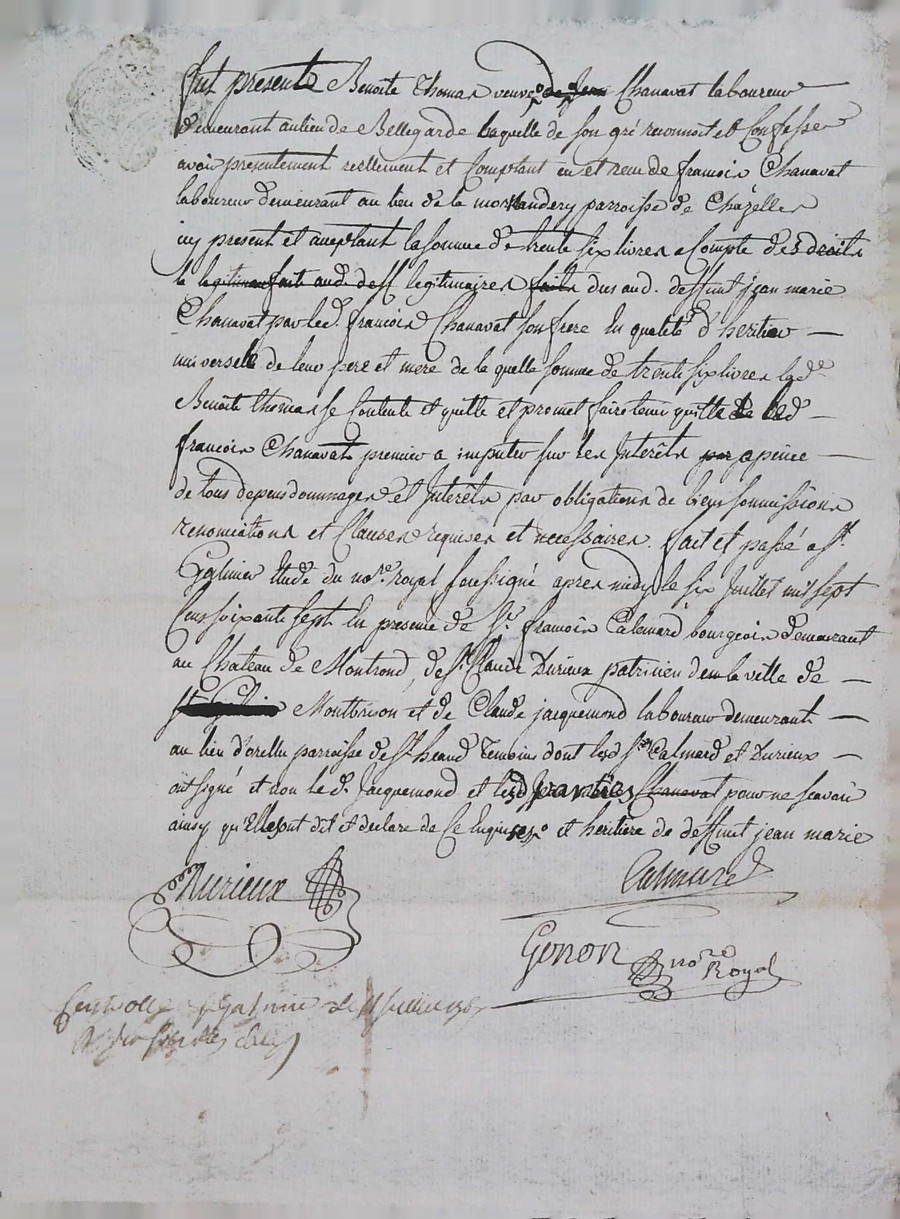 fut presente Benoite thomas veuve de Jean Chanavat laboureur
demeurant au lieu de Bellegarde laquelle de son gré reconnoit et Confesse
avoir presentement reellement et Comptant eu et reçu de francois Chanavat
laboureur demeurant au lieu de la parroisse de Chazelles
icy present et aceptant la somme de trente six livres a Compte des droits
legitimaires faits dus aud. deffunt jean marie
Chanavat par led. francois Chanavat son frere en qualité d'heritier
universelle de leur pere et mere de la quelle somme de trente six livres lad.e
Benoite thomas se Contente et quitte et promet faire tenir quitte led
francois Chanavat premier a imputer sur les Interêts a peine
de tous depens dommages et Interêts par obligations de biens soumissions
renonciations et Clauses requises et necessaires. fait et passé a St.
Galmier Etude du no.re royal soussigné apres midy le six Juillet mil sept
Cens soixante sept en presence de Sr. francois Calemard bourgeois demeurant
au Chateau de Montrond, de Sr. Claude Durieux patricien de la ville de
Montbrison et de Claude jacquemond laboureur demeurant
au lieu d'orellu parroisse de St. heand temoins dont lesd Srs Calmard et Durieux
ont signé et non le d. Jacquemond et lesd parties Chanavat pour ne scavoir
ainsy qu'Elles ont dit et declare de Ce Enquises et heritiere de deffunt jean marie
Durieux Calmard
Genon no.re Royal
Controllé a St Galmier le Juillet